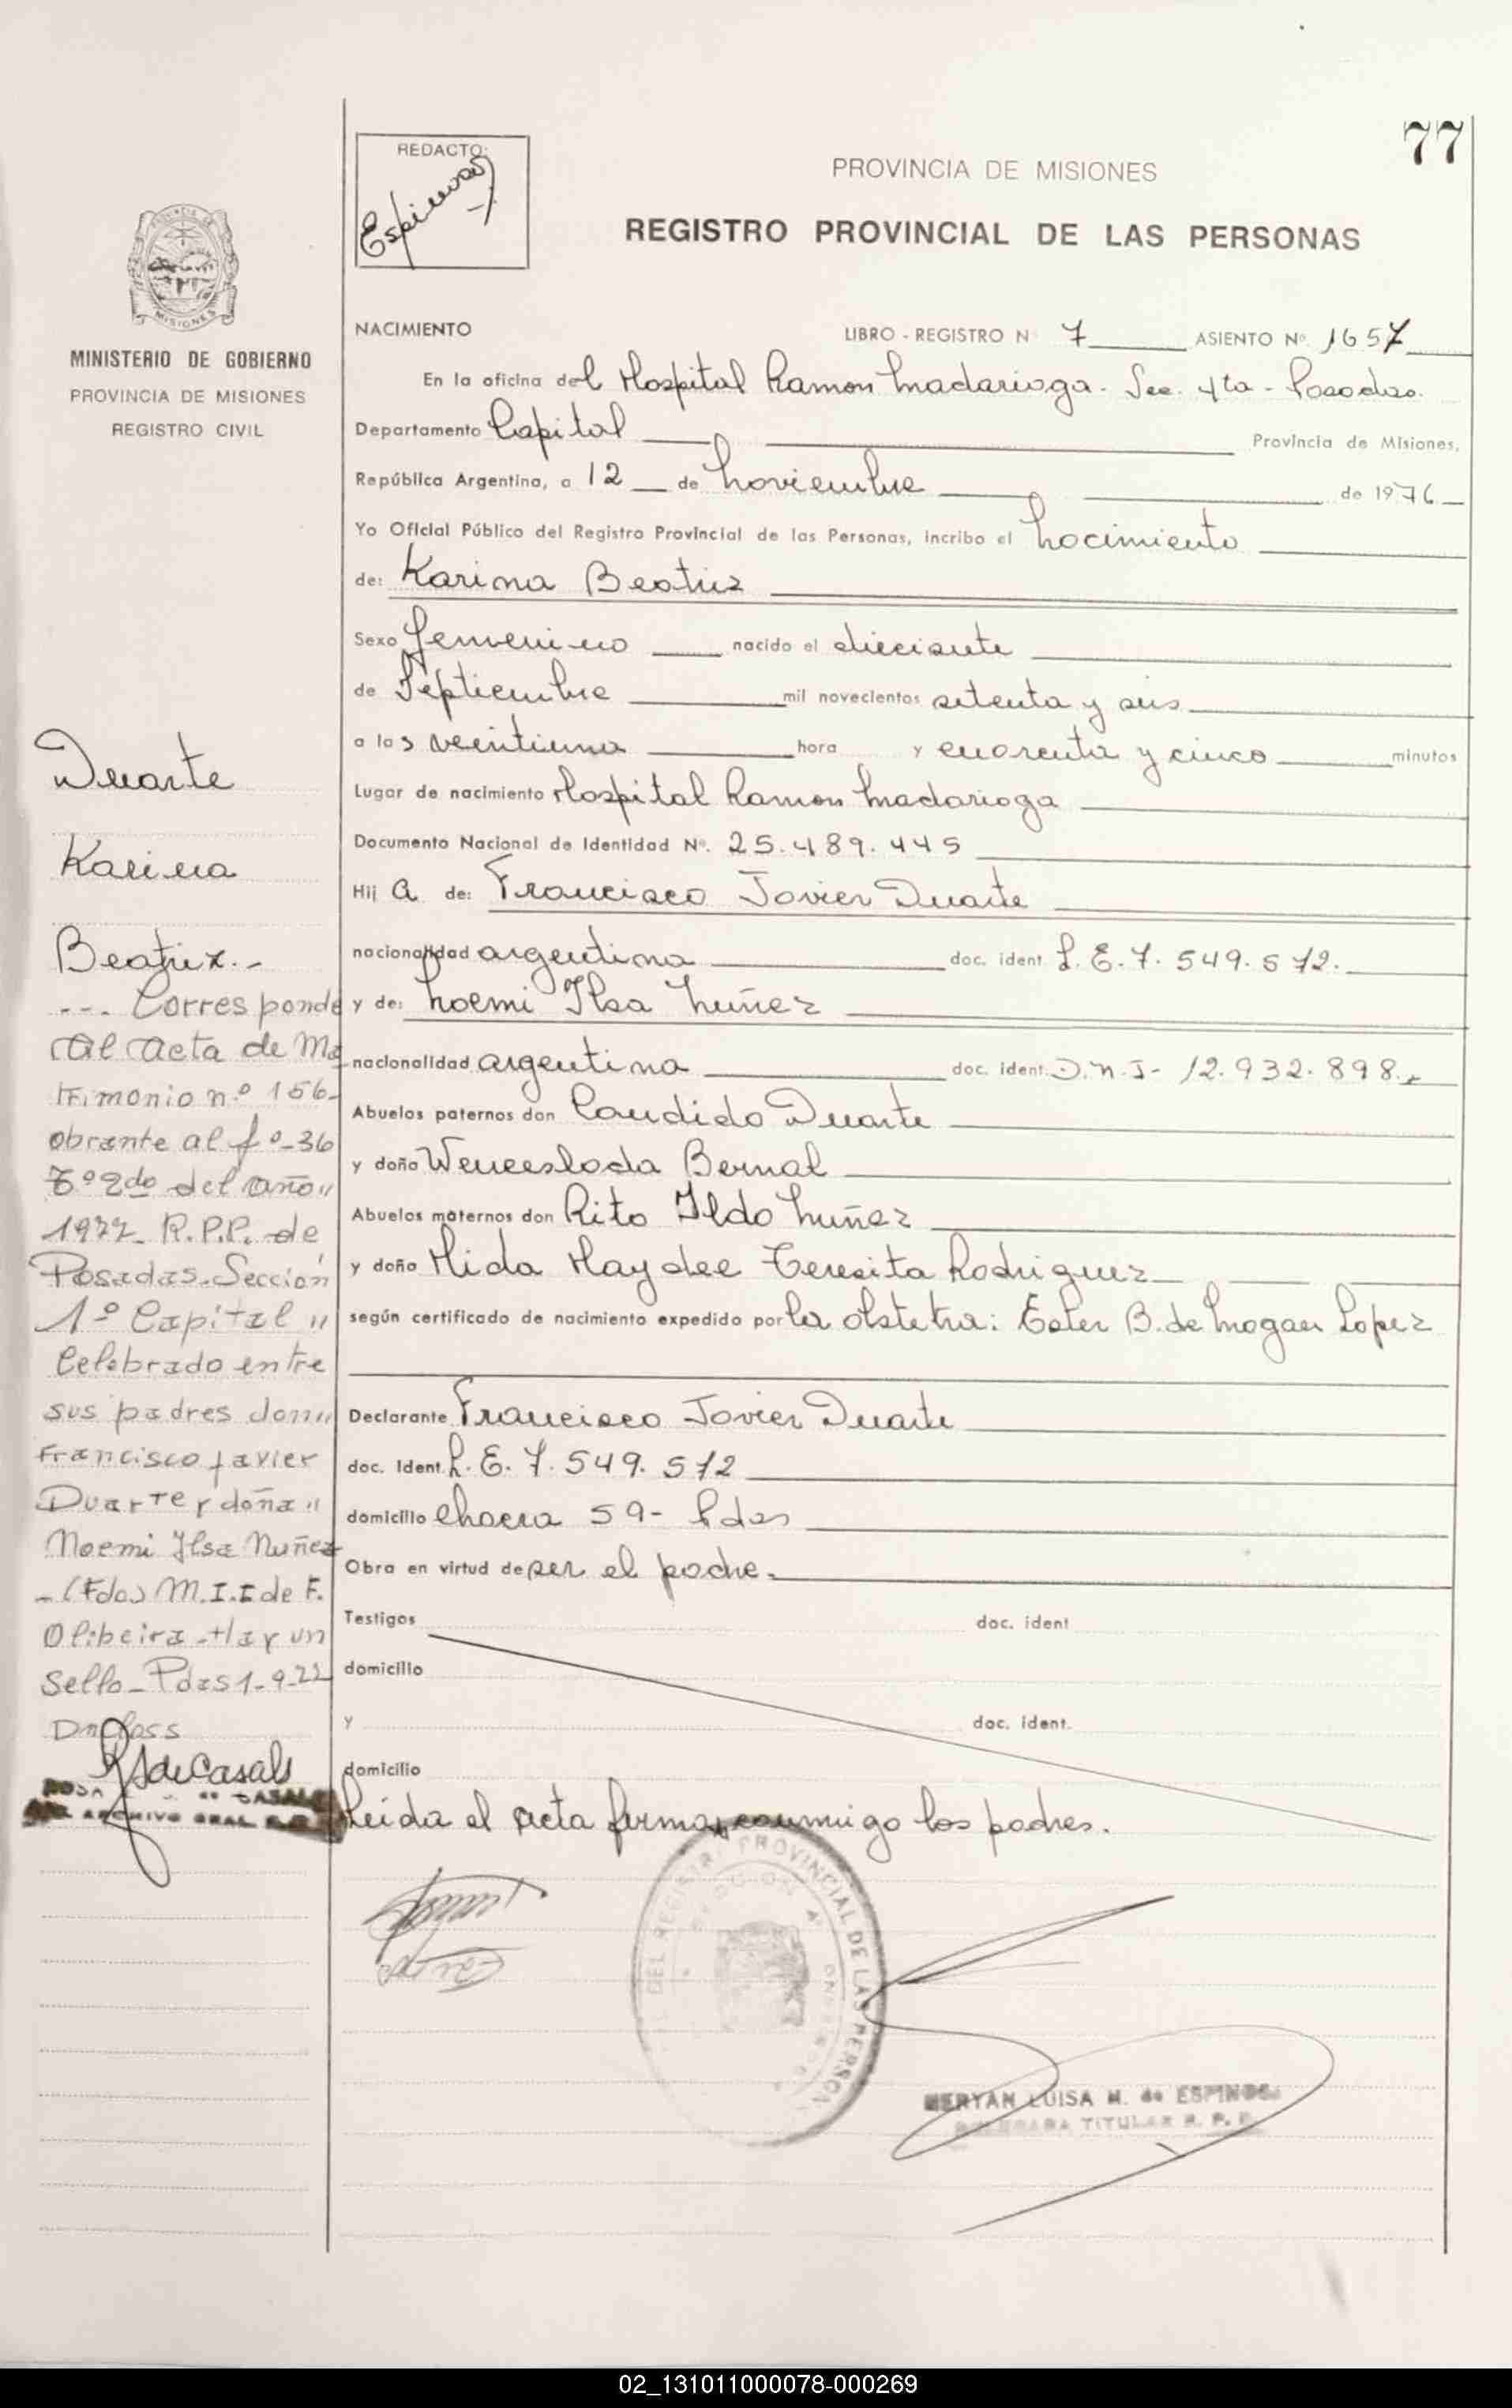 77
REDACTO:
Espinosa
PROVINCIA DE MISIONES
REGISTRO PROVINCIAL DE LAS PERSONAS
MISIONES
MINISTERIO DE GOBIERNO
PROVINCIA DE MISIONES
REGISTRO CIVIL
NACIMIENTO LIBRO - REGISTRO Nº 7 ASIENTO Nº. 1657
En la oficina del Hospital Ramon Madariaga - Sec. 4ta - Posadas.
Departamento Capital Provincia de Misiones,
República Argentina, a 12 de Noviembre de 1976
Yo Oficial Público del Registro Provincial de las Personas, incribo el Nacimiento
de: Karina Beatriz
Sexo femenino nacido el diecisiete
de Septiembre mil novecientos setenta y seis
a las veintiuna hora y cuarenta y cinco minutos
Lugar de nacimiento Hospital Ramon Madariaga
Documento Nacional de Identidad Nº. 25.489.445
Hij a de: Francisco Javier Duarte
nacionalidad argentina doc. ident. L.E. 7.549.572.
y de: Noemi Ilsa Nuñez
nacionalidad argentina doc. ident. D.N.I- 12.932.898.-
Abuelos paternos don Candido Duarte
y doña Wenceslada Bernal
Abuelos maternos don Rito Ildo Nuñez
y doña Hida Haydee Teresita Rodriguez
según certificado de nacimiento expedido por la obstetra: Ester B. de Mogan Lopez
Declarante Francisco Javier Duarte
doc. Ident. L.E. 7.549.572
domicilio chacra 59- Pdas
Obra en virtud de ser el padre.
Testigos doc. ident
domicilio
y doc. ident.
domicilio
Leida el acta firman conmigo los padres.
Duarte
Karina
Beatriz.-
--- Corresponde
al acta de Ma
trimonio n.º 156-
obrante al fº-36
Tº 2do del año"
1977- R.P.P. de
Posadas-Sección
1º Capital "
Celebrado entre
sus padres don"
Francisco Javier
Duarte y doña "
Noemi Ilsa Nuñez
-(Fdo) M.I.I de F.
Olibeira-Hay un
Sello-Pdas 1-9-22
de Casals
ARCHIVO GRAL
REGISTRO PROVINCIAL DE LAS PERSONAS
MERYAN LUISA M. de ESPINOSA
TITULAR R. P. P.
02_131011000078-000269